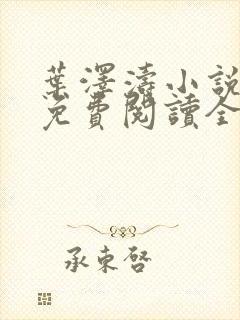 葉澤濤小說
免費閱讀全
承東啓